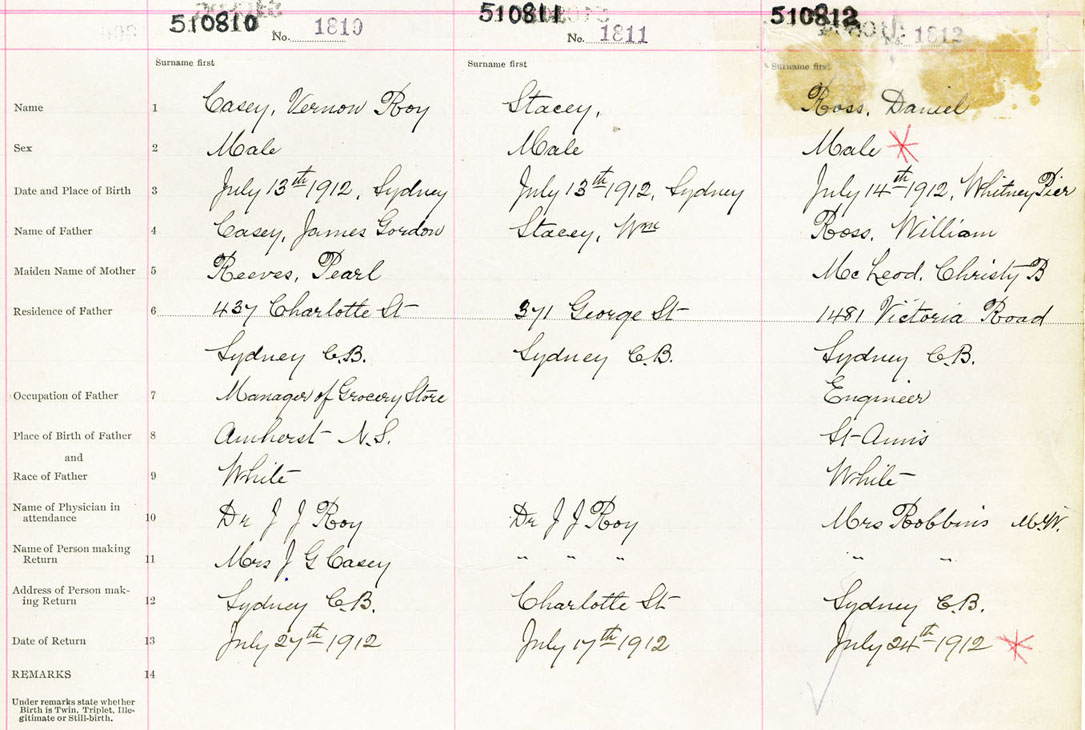 510810 510811 510812
No. 1810 No. 1811 No. 1812
Surname first Surname first Surname first
Name 1 Casey, Vernon Roy Stacey, Ross, Daniel
Sex 2 Male Male Male
Date and Place of Birth 3 July 13th 1912, Sydney July 13th 1912, Sydney July 14th 1912, Whitney Pier
Name of Father 4 Casey, James Gordon Stacey, Wm Ross, William
Maiden Name of Mother 5 Reeves, Pearl McLeod, Christy B
Residence of Father 6 437 Charlotte St 371 George St 1481 Victoria Road
Sydney C.B. Sydney C.B. Sydney C.B.
Occupation of Father 7 Manager of Grocery Store Engineer
Place of Birth of Father 8 Amherst N.S. St Anns
and
Race of Father 9 White White
Name of Physician in
attendance 10 Dr J J Roy Dr J J Roy Mrs Robbins M.W.
Name of Person making
Return 11 Mrs J G Casey " " " " "
Address of Person mak-
ing Return 12 Sydney C.B. Charlotte St Sydney C.B.
Date of Return 13 July 27th 1912 July 17th 1912 July 24th 1912
REMARKS 14
Under remarks state whether
Birth is Twin, Triplet, Ille-
gitimate or Still-birth.